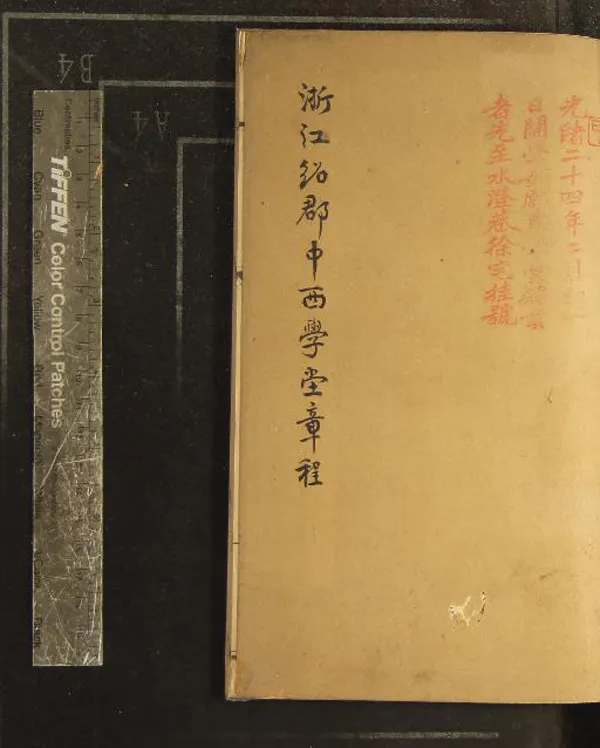 光緒二十四年二月初一
日開學
者先至水澄巷徐宅挂號
浙江紹郡中西學堂章程
B4
A4
TIFFEN Color Control Patches
Blue
Cyan
Green
Yellow